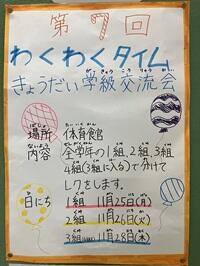 第7回
わくわくタイム
きょうだい学級交流会
場所 体育館
内容 全学年の1組、2組、3組
4組(3組に入る)で分けて
レクをします。
日にち 1組 11月25日(月)
2組 11月26日(火)
3組 11月28日(木)